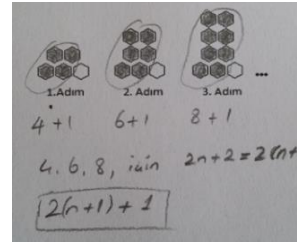 1.Adım 2. Adım 3. Adım ...
4+1 6+1 8+1
4, 6, 8, için 2n+2=2(n+
2(n+1)+1